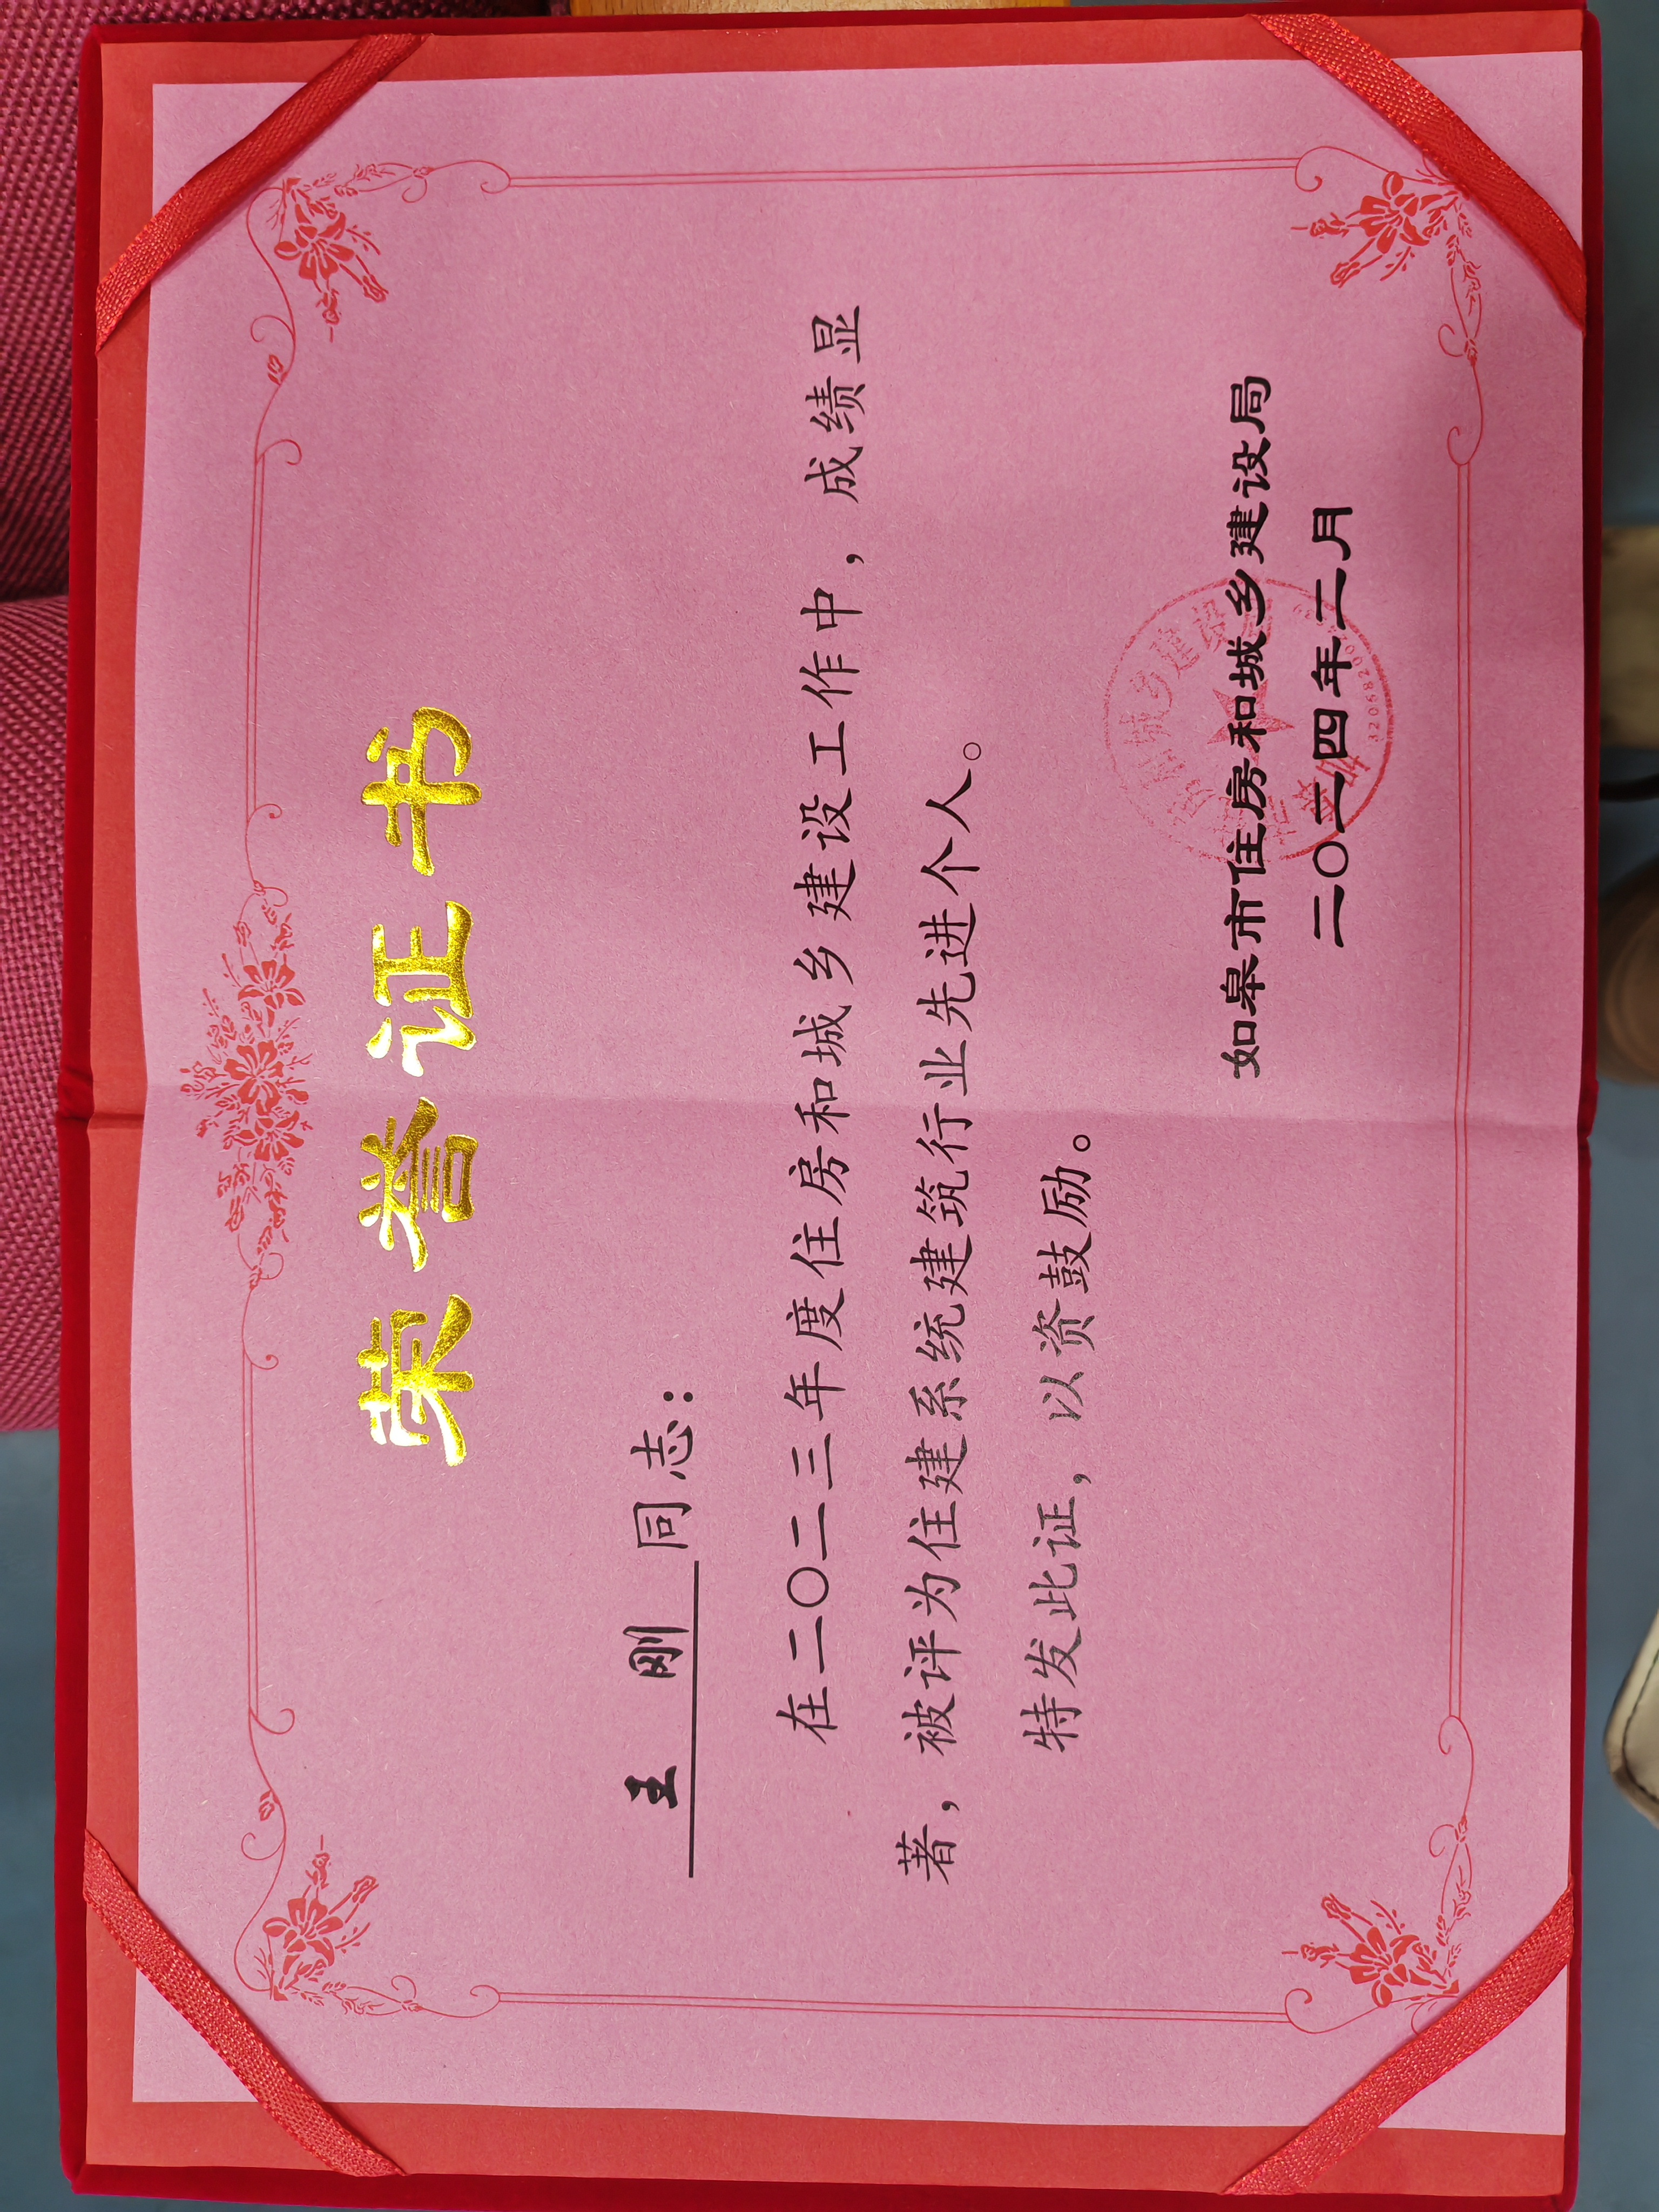 荣誉证书
王 刚 同志：
在二〇二三年度住房和城乡建设工作中，成绩显
著，被评为住建系统建筑行业先进个人。
特发此证，以资鼓励。
如皋市住房和城乡建设局
二〇二四年二月